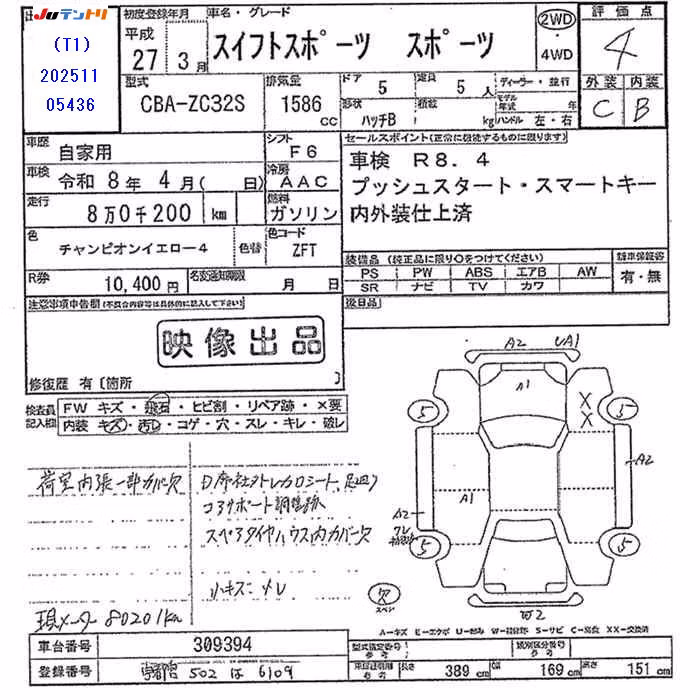 社 JUテントリ
(T1)
202511
05436
初度登録年月
平成
27 3月
車名・グレード
スイフトスポーツ スポーツ
2WD
・
4WD
評価点
4
型式
CBA-ZC32S
排気量
1586 cc
ドア
5
定員
5 人
ディーラー・並行
モデル年式 年
形状
ハッチB
積載 kg
ハンドル 左・右
外装 内装
C B
車歴
自家用
シフト
F6
車検
令和 8年 4月( 日)
冷房
AAC
走行
8万0千200 km
燃料
ガソリン
色
チャンピオンイエロー4
色替
色コード
ZFT
R券
10,400円
名変通知期限
月 日
セールスポイント(正常に機能するものに限ります)
車検 R8.4
プッシュスタート・スマートキー
内外装仕上済
装備品(純正品に限り○をつけてください)
PS PW ABS エアB AW
SR ナビ TV カワ
新車保証書
有・無
後日品
注意事項申告欄(不具合内容等は具体的に記入して下さい)
映像出品
修復歴 有〔箇所 〕
検査員記入欄
FW キズ・飛石・ヒビ割・リペア跡・×要
内装 キズ・汚れ・コゲ・穴・スレ・キレ・破レ
荷室内張一部カバー欠
D席社外レカロシート
スペアタイヤハウス内カバー欠
小キズ
現メーター 80201km
A2 UA1
A1
X
X
5 5
A2
A1
A2
5 5
欠
スペア
A-キズ E-エクボ U-凹み W-補修跡 S-サビ C-腐食 XX-交換済
車台番号
309394
登録番号
502 は 6109
型式指定番号
参考
類別区分番号
参考
車庫証明用
参考
長さ 389 cm
幅 169 cm
高さ 151 cm